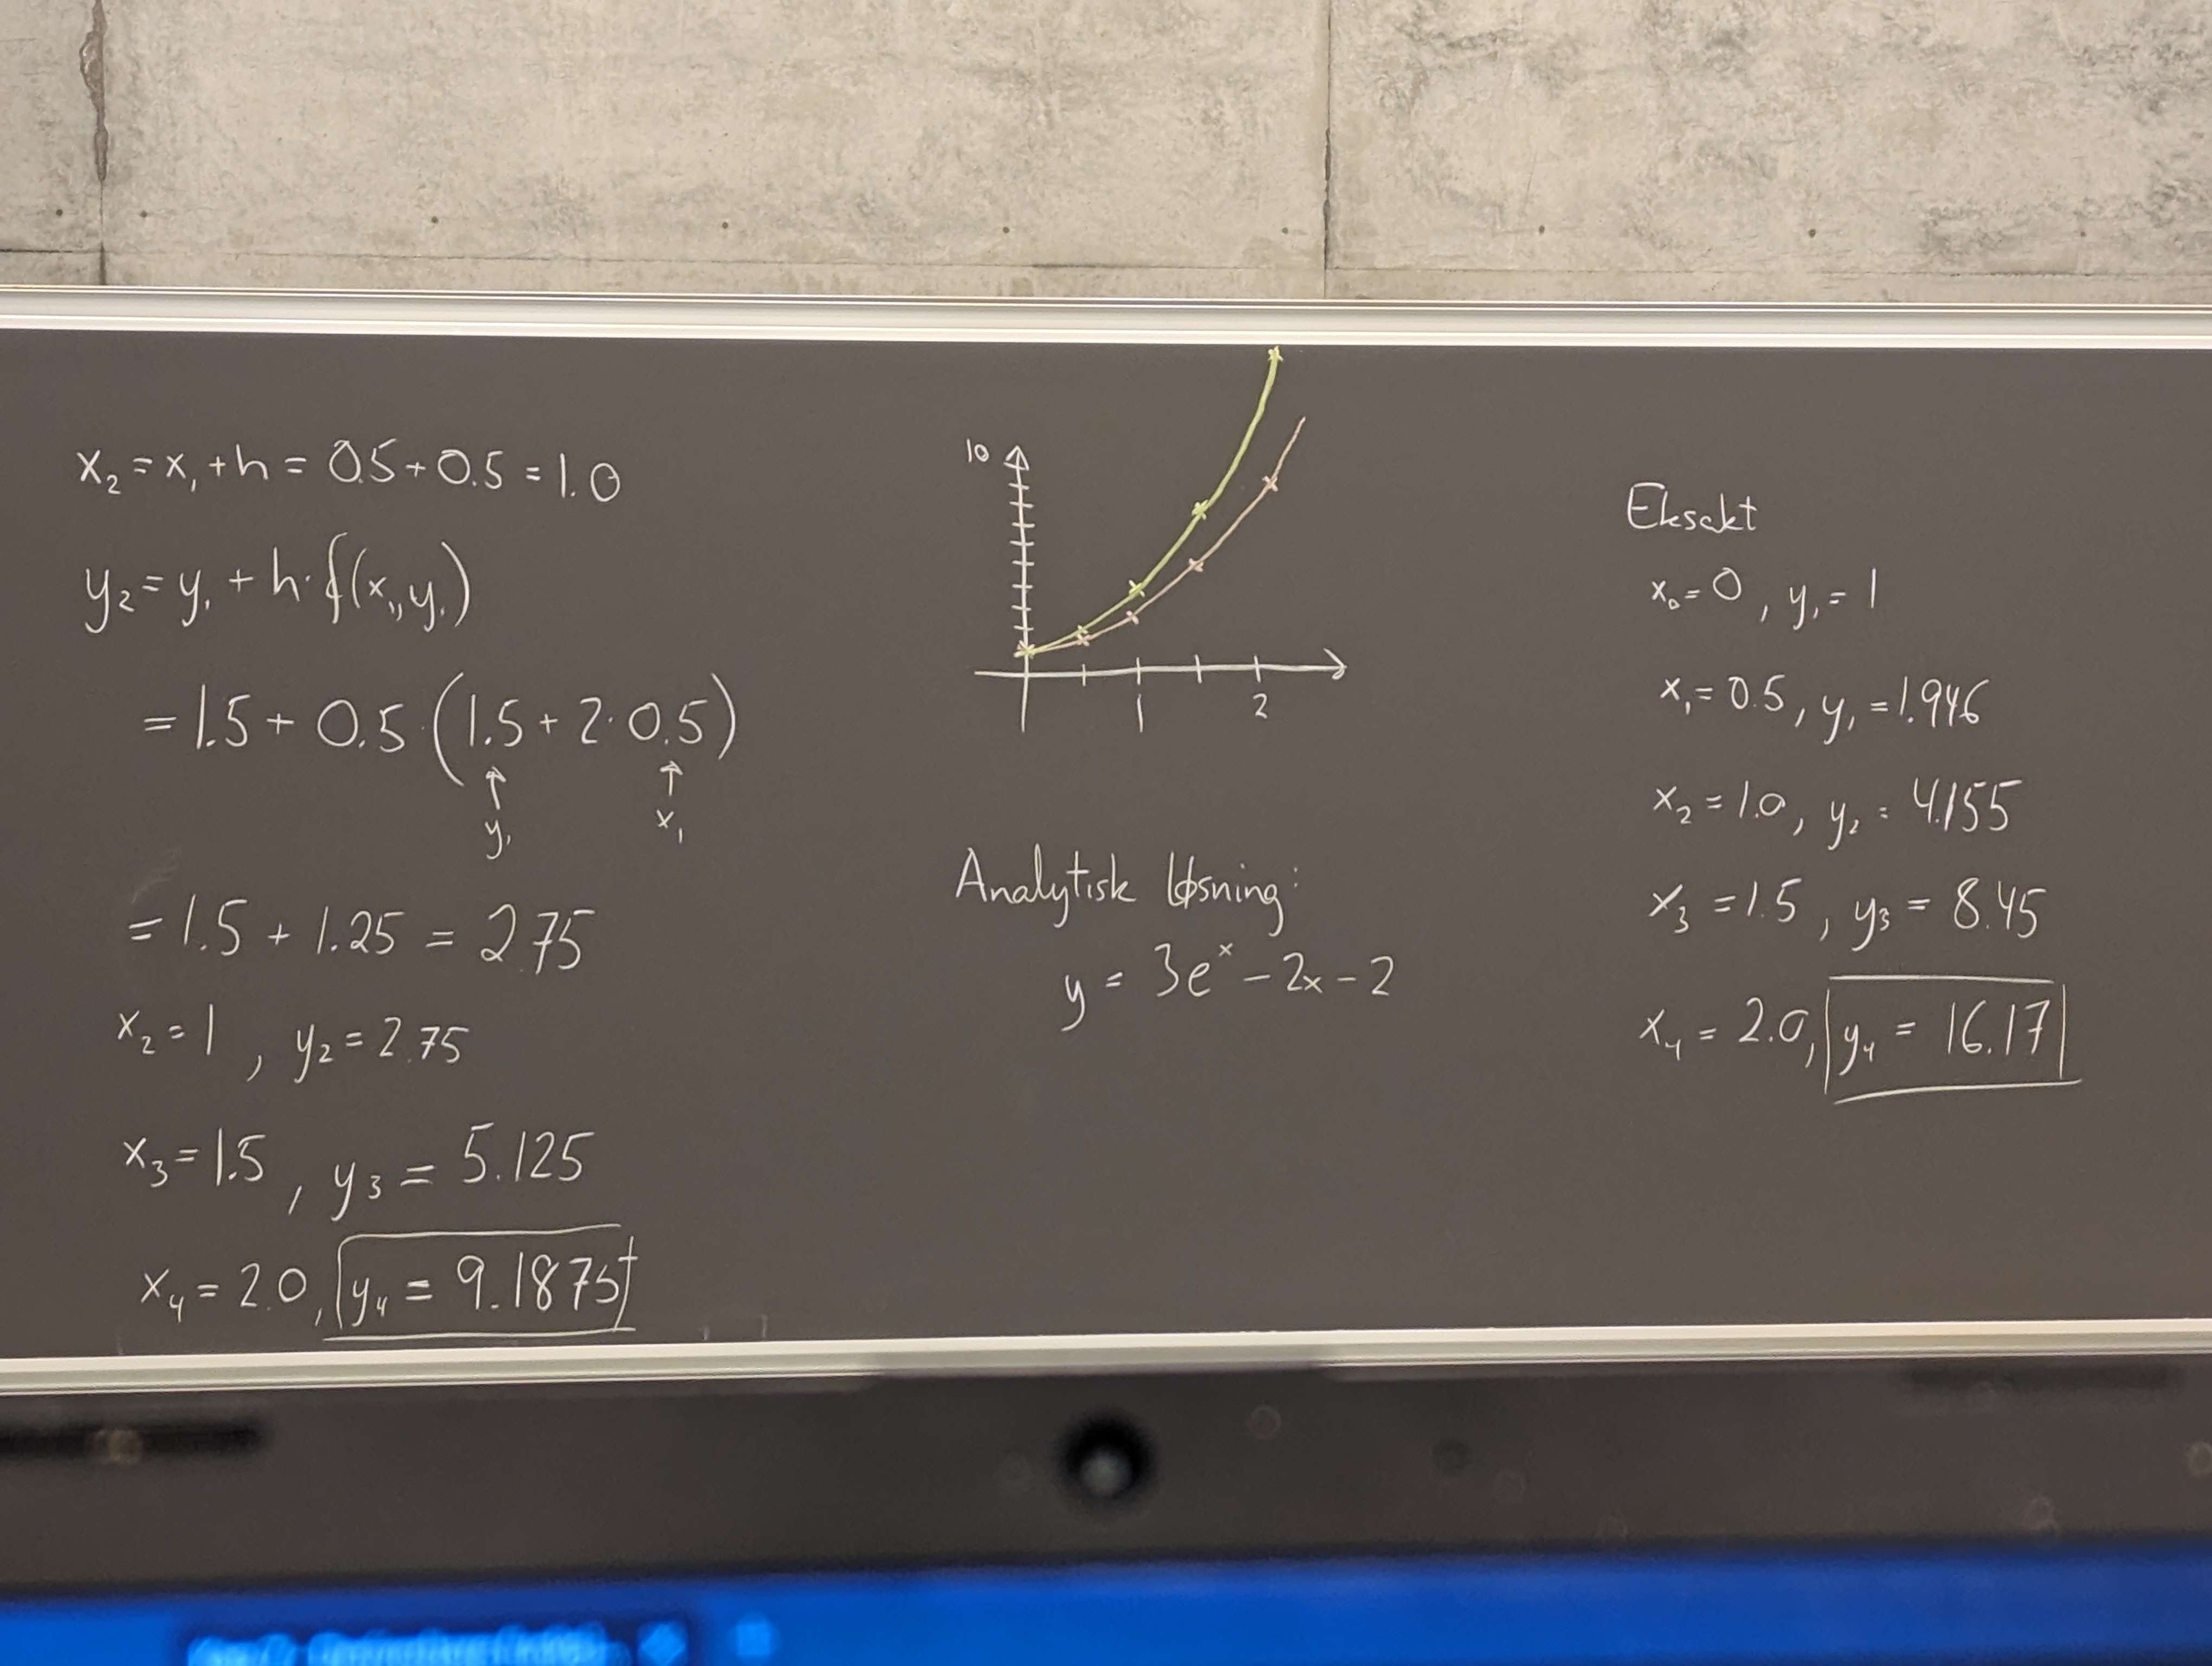 x₂ = x₁ + h = 0.5 + 0.5 = 1.0
y₂ = y₁ + h · f(x₁, y₁)
= 1.5 + 0.5 · (1.5 + 2 · 0.5)
↑ ↑
y₁ x₁
= 1.5 + 1.25 = 2.75
x₂ = 1 , y₂ = 2.75
x₃ = 1.5 , y₃ = 5.125
x₄ = 2.0, y₄ = 9.1875
10
1 2
Analytisk løsning:
y = 3eˣ − 2x − 2
Eksakt
x₀ = 0 , y₁ = 1
x₁ = 0.5, y₁ = 1.946
x₂ = 1.0, y₂ = 4.155
x₃ = 1.5 , y₃ = 8.45
x₄ = 2.0, y₄ = 16.17